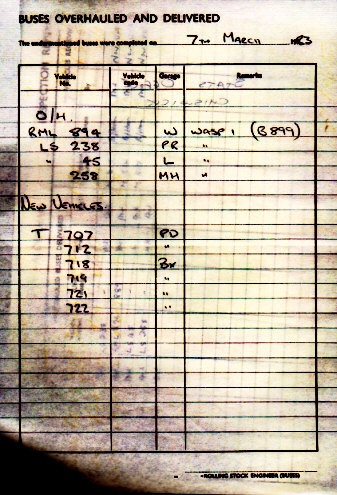 BUSES OVERHAULED AND DELIVERED
The undermentioned buses were completed on 7TH MARCH 1983
Vehicle No. Vehicle Code Garage Remarks
O/H.
RML 894 W WASP 1 (B899)
LS 238 PR "
" 45 L "
258 MH "
NEW VEHICLES.
T 707 PD
712 "
718 BK
719 "
721 "
722 "
ROLLING STOCK ENGINEER (BUSES)